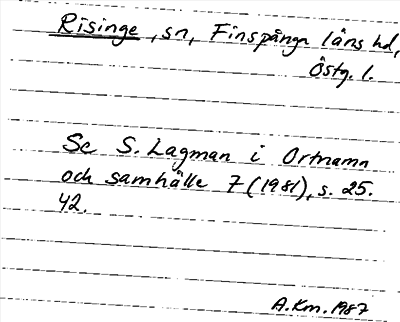 Risinge, sn, Finspånga läns hd,
Östg. l.
Se S. Lagman i Ortnamn
och samhälle 7 (1981), s. 25.
42.
A.Km. 1987